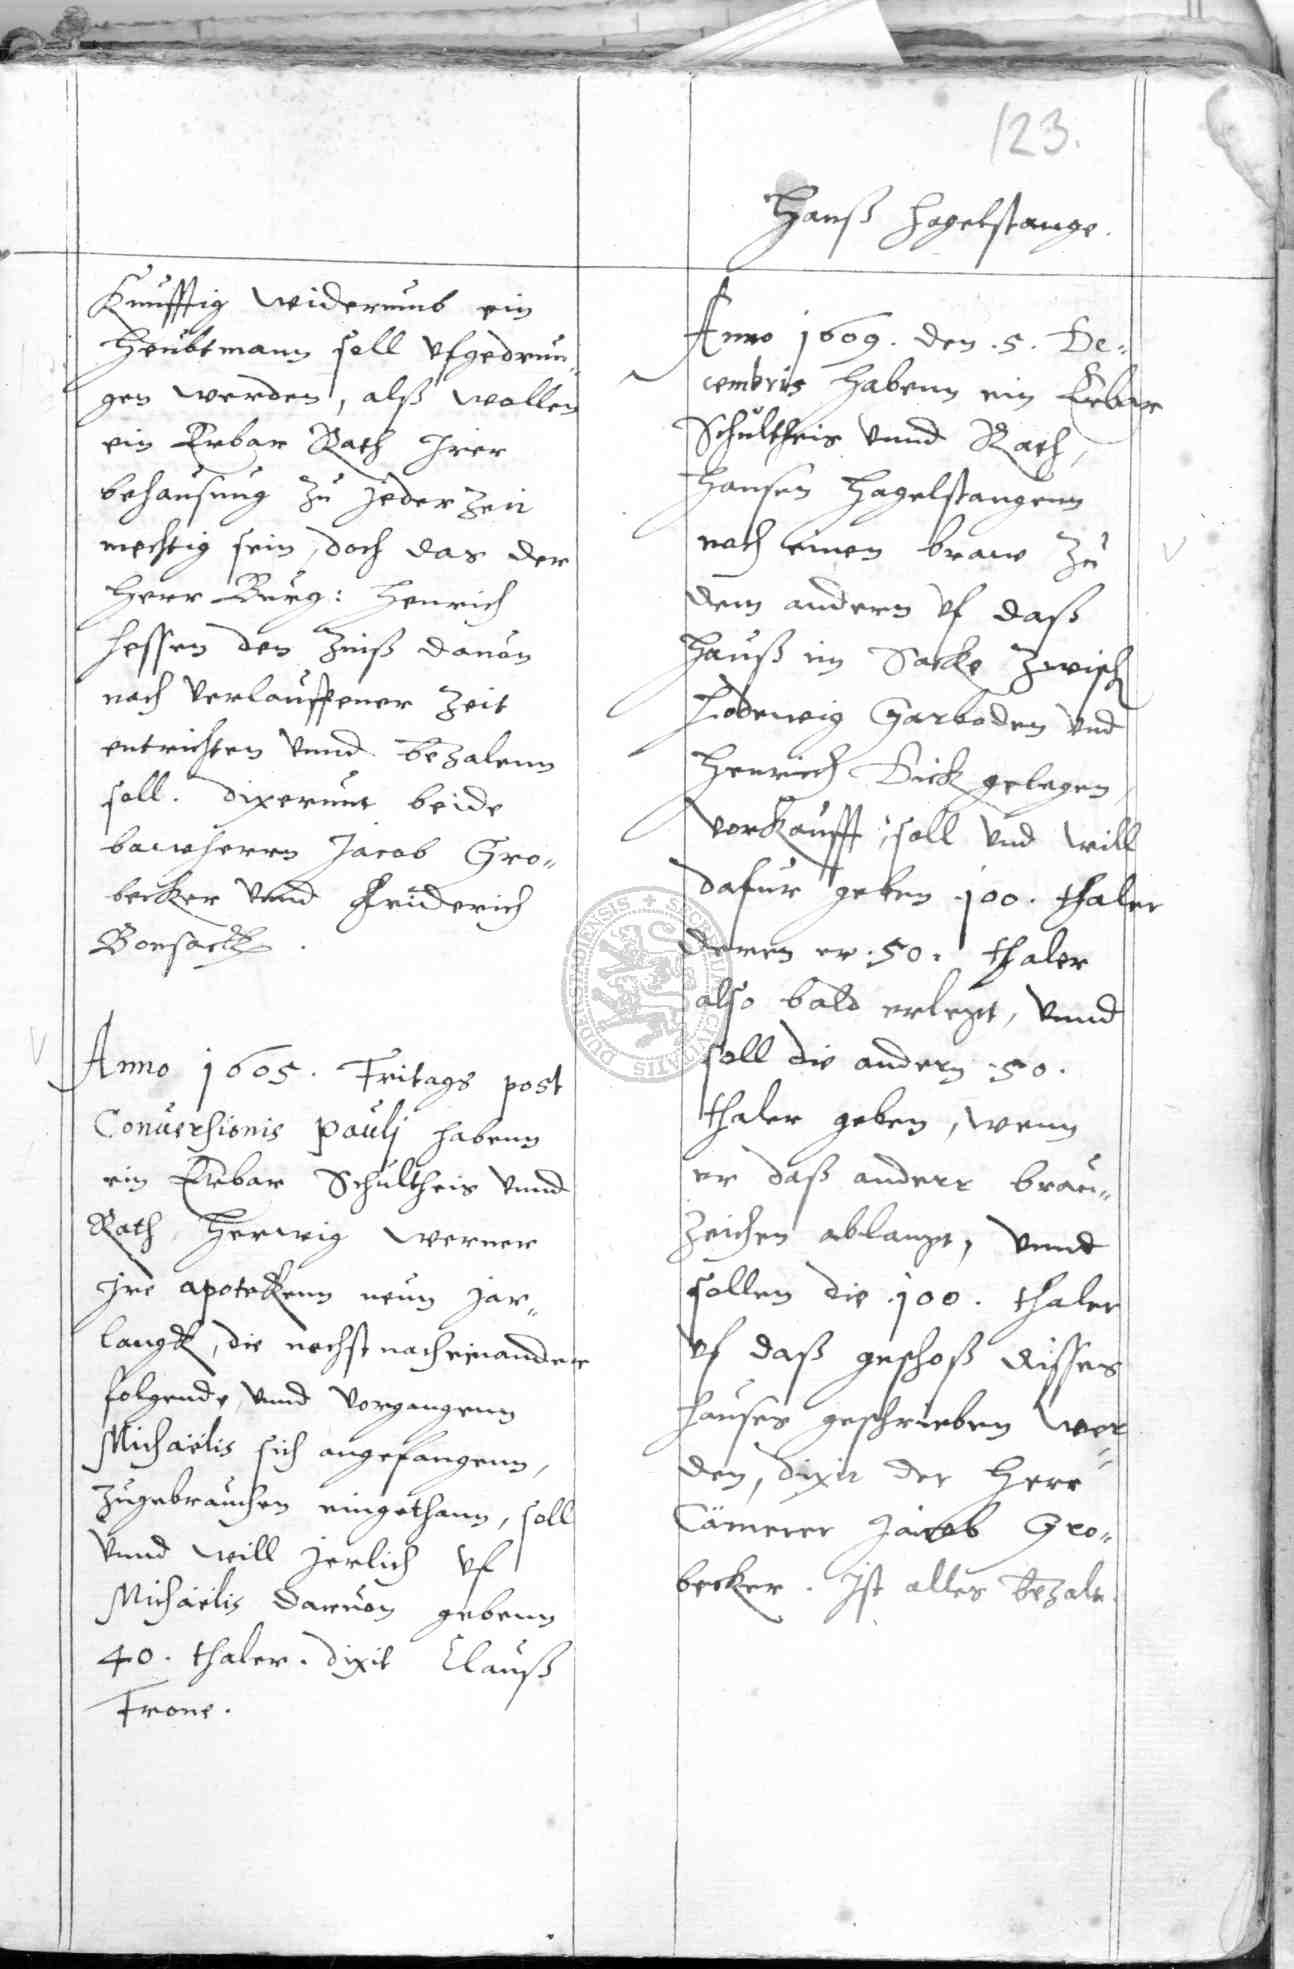 123.
Hanß Hagelstange.
Kunfftig widerumb ein
Heubtmann soll vfgedrun„
gen werden, alß wollen
ein Erbar Rath Irer
behausung zu jeder Zeit
mechtig sein, doch das der
Herr Burg: Henrich
Hessen den Zinß dauon
nach verlauffener Zeit
entrichten vnnd bezalenn
soll. dixerunt beide
bawherrn Jacob Gro„
becker vnnd Friderich
Bonsack.
Anno 1605. Fritags post
Conuersionis pauli habenn
ein Erbar Schultheis vnnd
Rath, Herwig werner
Ire apoteckenn neun Jar„
langk, die nechst nacheinander
folgende, vnnd vorgangenn
Michaelis sich angefangenn,
zugebrauchen eingethann, soll
vnnd will Jerlich vf
Michaelis daruon gebenn
40. thaler. dixit Clauß
Frone.
Anno 1609. den .5. De„
cembris habenn ein Erbar
Schultheis vnnd Rath,
Hansen Hagelstangenn
noch einen braw zu
dem andern vf daß
Hauß im Sacke zwisch
Lodewig Garboden vnd
Henrich Dick gelegen,
vorkaufft, soll vnd will
dafur geben .100. thaler
deren er .50. thaler
also bald erlegt, vnnd
soll die andern .50.
thaler geben, wenn
er daß anderr brau„
zeichen ablangt, vnnd
sollen die .100. thaler
vf daß geschoß disses
Hauses geschrieben wer„
den, dixit der Herr
Cämerer Jacob Gro„
becker. Ist alles bezalt.
DUDERSTADIENSIS + SECRETUM CIVITATIS